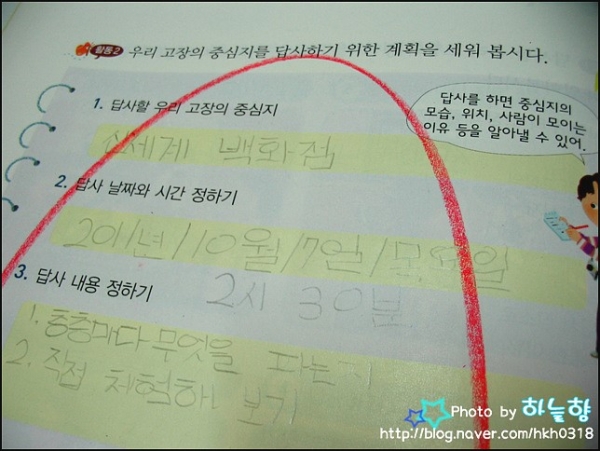 활동 2 우리 고장의 중심지를 답사하기 위한 계획을 세워 봅시다.
1. 답사할 우리 고장의 중심지
신세계 백화점
답사를 하면 중심지의
모습, 위치, 사람이 모이는
이유 등을 알아낼 수 있어.
2. 답사 날짜와 시간 정하기
2011년/10월/7일/모요일
2시 30분
3. 답사 내용 정하기
1. 층층마다 무엇을 파는지
2. 직접 체험하기 보기
Photo by 하늘향
http://blog.naver.com/hkh0318